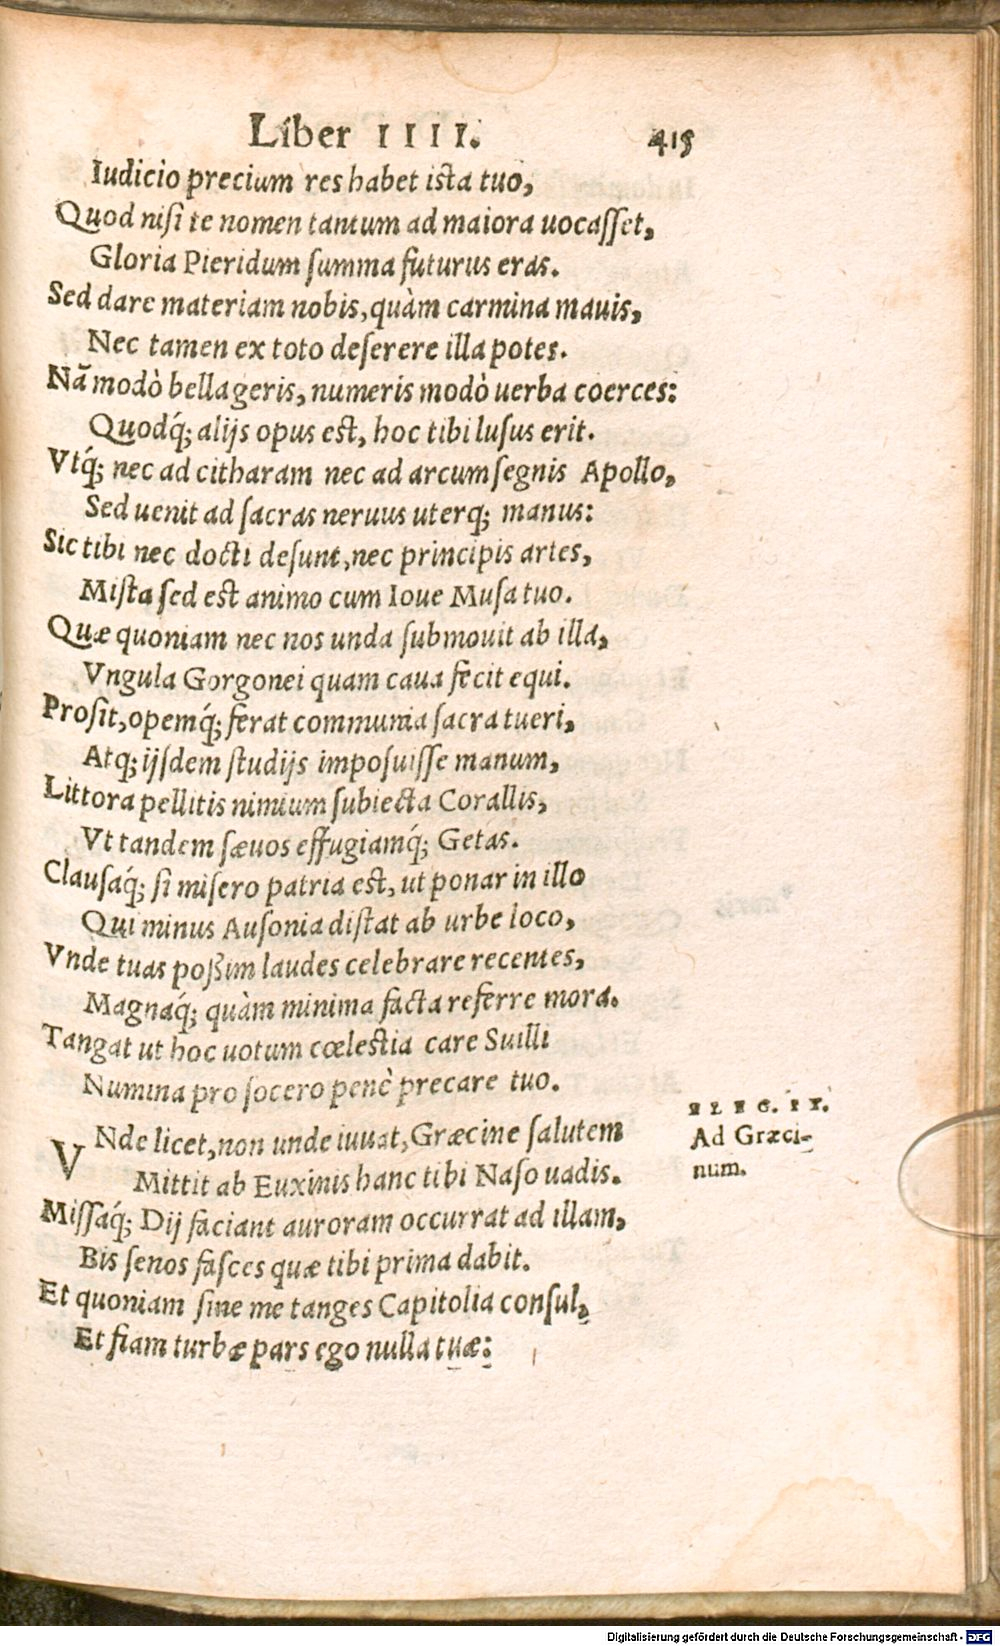 Liber IIII. 415
Iudicio precium res habet ista tuo,
Quod nisi te nomen tantum ad maiora uocasset,
Gloria Pieridum summa futurus eras.
Sed dare materiam nobis, quàm carmina mauis,
Nec tamen ex toto deserere illa potes.
Nā modò bella geris, numeris modò uerba coerces:
Quodq́; alijs opus est, hoc tibi lusus erit.
Vtq́; nec ad citharam nec ad arcum segnis Apollo,
Sed uenit ad sacras neruus uterq; manus:
Sic tibi nec docti desunt, nec principis artes,
Mista sed est animo cum Ioue Musa tuo.
Quæ quoniam nec nos unda submouit ab illa,
Vngula Gorgonei quam caua fecit equi.
Prosit, opemq́; ferat communia sacra tueri,
Atq; ijsdem studijs imposuisse manum,
Littora pellitis nimium subiecta Corallis,
Vt tandem sæuos effugiamq́; Getas.
Clausaq́; si misero patria est, ut ponar in illo
Qui minus Ausonia distat ab urbe loco,
Vnde tuas poßim laudes celebrare recentes,
Magnaq́; quàm minima facta referre mora.
Tangat ut hoc uotum cœlestia care Suilli
Numina pro socero penè precare tuo.
VNde licet, non unde iuuat, Græcine salutem
Mittit ab Euxinis hanc tibi Naso uadis.
Missaq́; Dij faciant auroram occurrat ad illam,
Bis senos fasces quæ tibi prima dabit.
Et quoniam sine me tanges Capitolia consul,
Et fiam turbæ pars ego nulla tuæ:
ELEG. IX.
Ad Græci-
num.
Digitalisierung gefördert durch die Deutsche Forschungsgemeinschaft - DFG